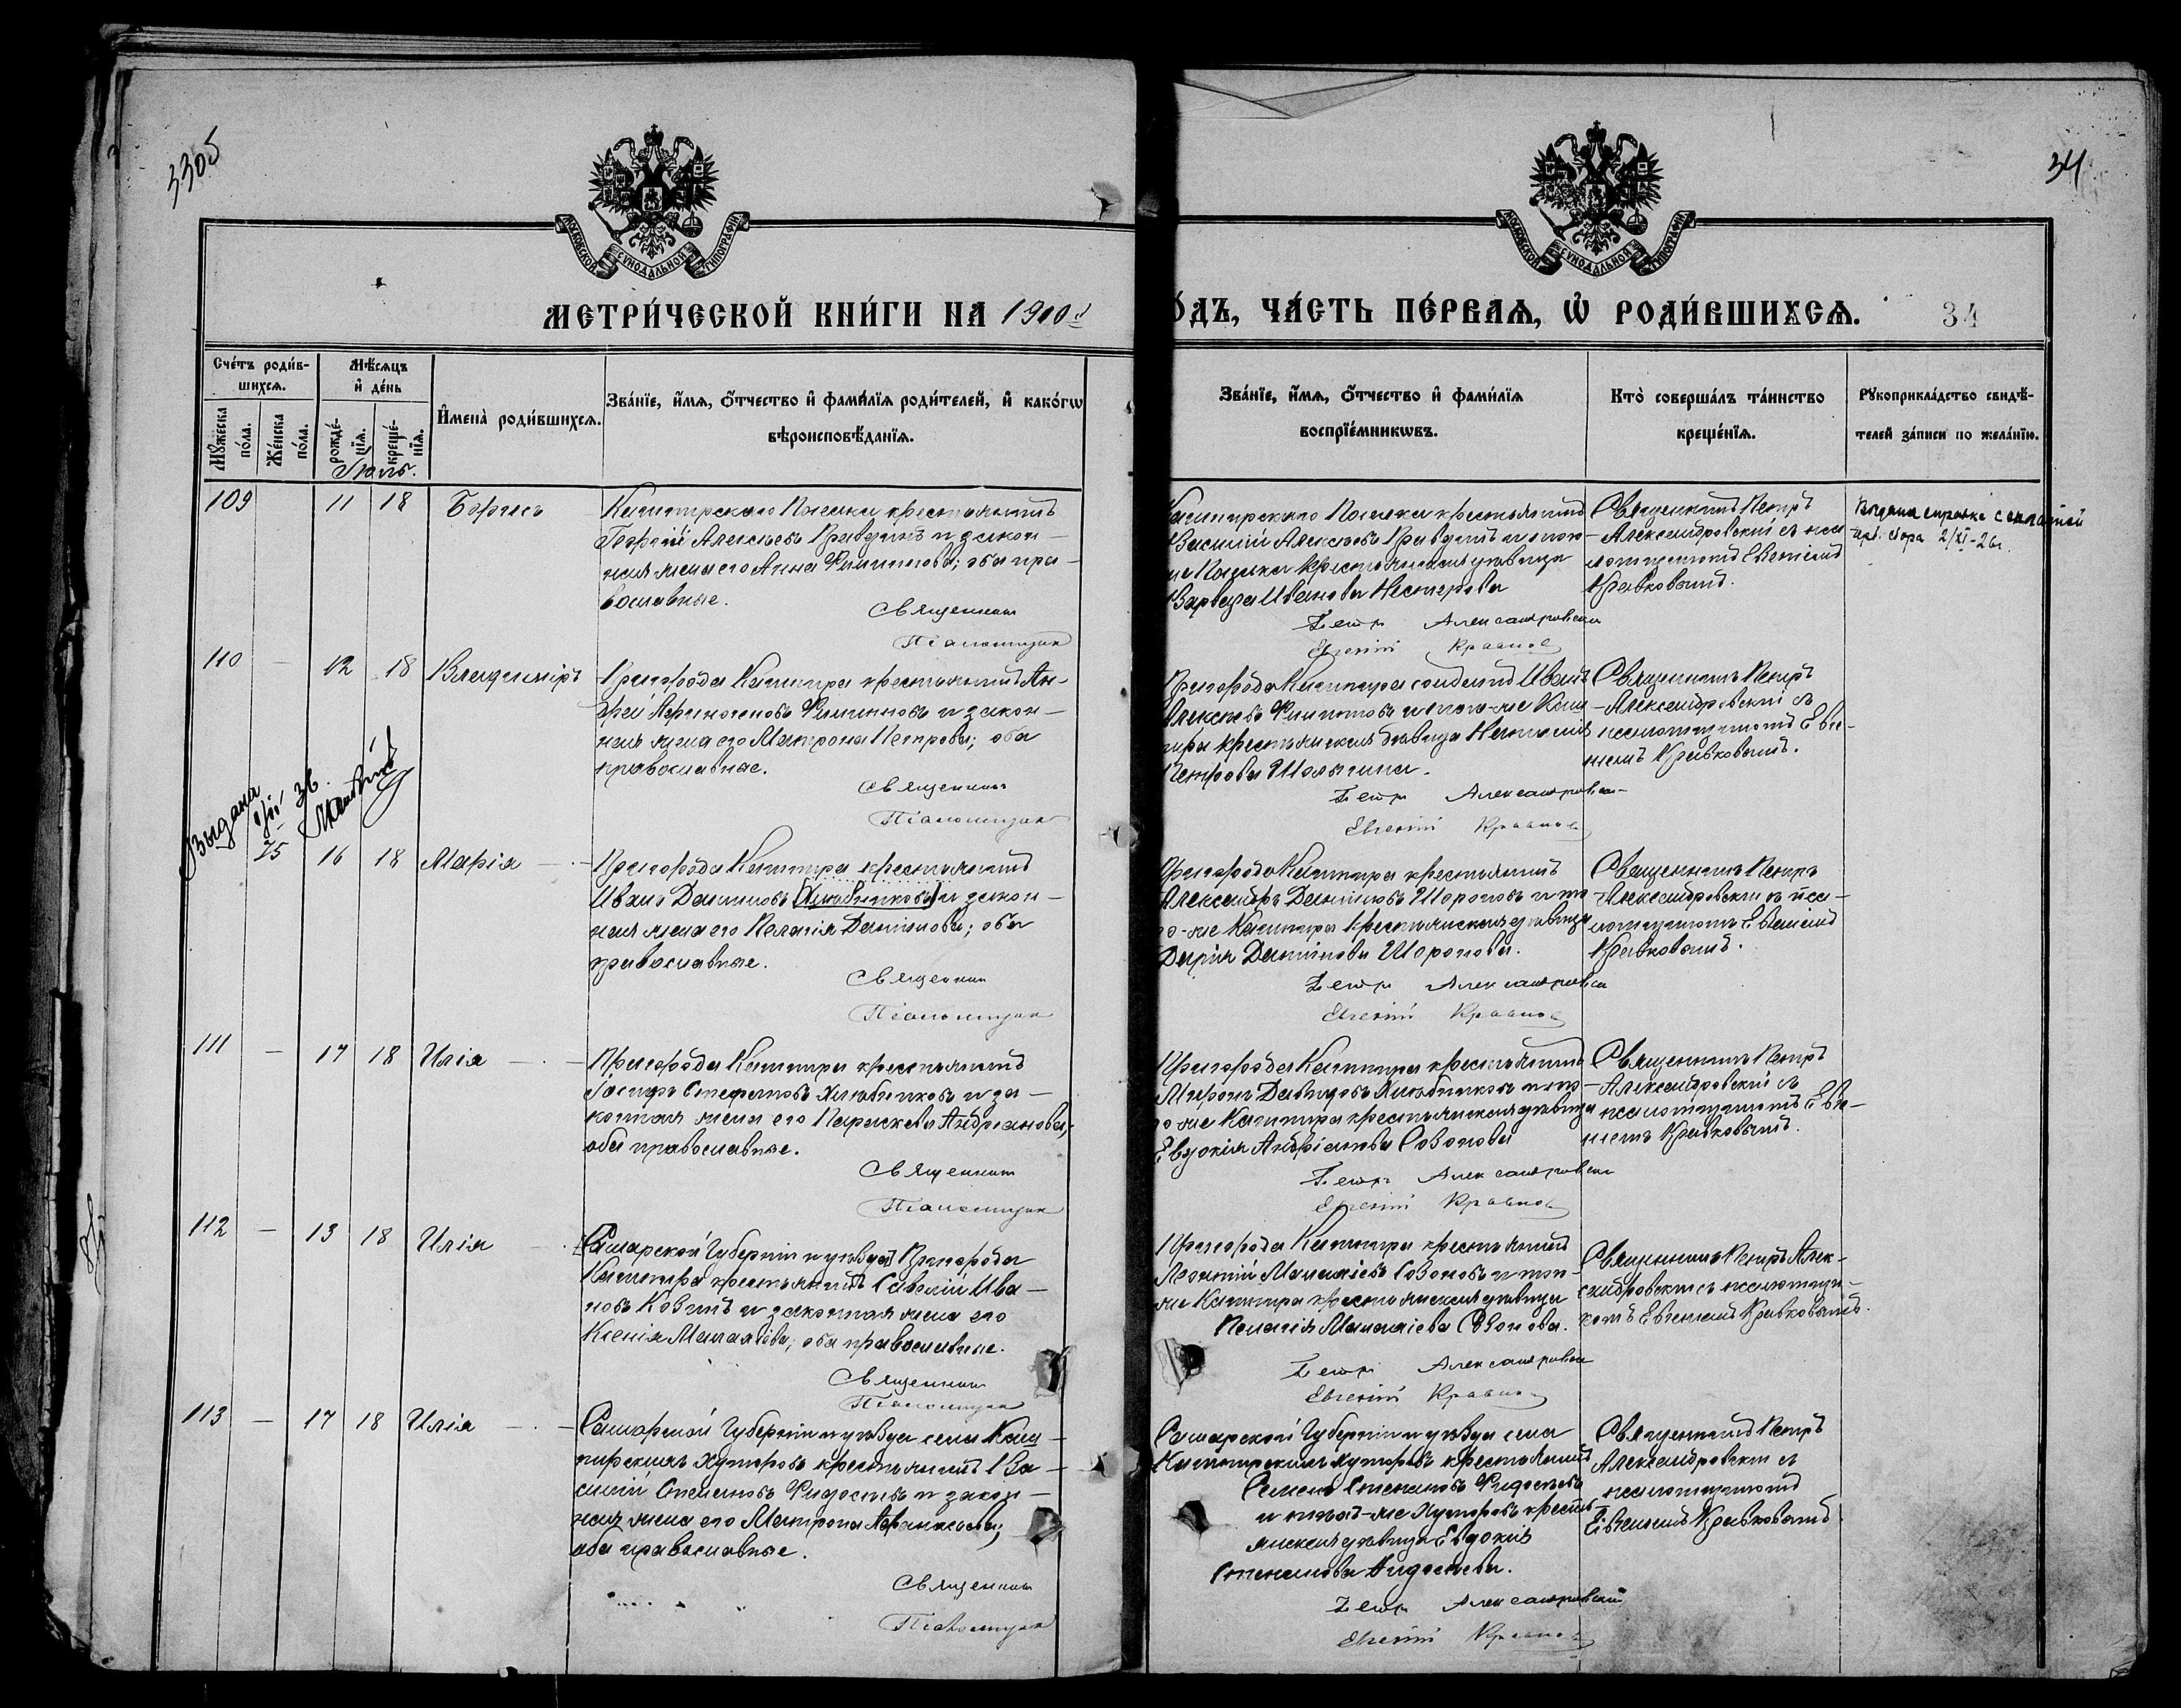 3305
34
МОСКОВСКОЙ СѴНОДАЛЬНОЙ ТИПОГРАФІИ
МОСКОВСКОЙ СѴНОДАЛЬНОЙ ТИПОГРАФІИ
МЕТРИ́ЧЕСКОЙ КНИ́ГИ НА 1900й
О́ДЪ, ЧА́СТЬ ПЕ́РВАѦ, Ѡ҆ РОДИ́ВШИХСѦ. 34
Сче́тъ роди́в-
шихсѧ.
Мꙋ́жеска
по́ла.
Же́нска
по́ла.
Мѣ́сѧцъ
и҆ де́нь
рожде́-
нїѧ.
креще́-
нїѧ.
И҆мена̀ роди́вшихсѧ.
Зва́нїе, и҆́мѧ, ѻ҆́тчество и҆ фами́лїѧ роди́телей, и҆ како́гѡ
вѣроисповѣ́данїѧ.
Зва́нїе, и҆́мѧ, ѻ҆́тчество и҆ фами́лїѧ
воспрїе́мникѡвъ.
Кто̀ соверша́лъ та́инство
креще́нїѧ.
Рꙋкоприкла́дство свидѣ́-
телей за́писи по жела́нїю.
Іюль.
109 11 18 Борисъ
Кашпирскаго Поселка крестьянинъ
Георгій Алексѣевъ Правдинъ и закон-
ная жена его Анна Филиппова; оба пра-
вославные.
Священникъ
Псаломщикъ
Кашпирскаго Поселка крестьянинъ
Василій Алексѣевъ Правдинъ и того
же Поселка крестьянская дѣвица
Варвара Иванова Нестерова
Петръ Александровскій
Евгеній Кравковъ
Священникъ Петръ
Александровскій съ пса-
ломщикомъ Евгеніемъ
Кравковымъ.
Выдана справка
2/XI-26г.
110 — 12 18 Владиміръ
Пригорода Кашпира крестьянинъ Ан-
дрей Филипповъ и закон-
ная жена его Матрона Петрова; оба
православные.
Священникъ
Псаломщикъ
Пригорода Кашпира солдатъ Иванъ
Алексѣевъ Филипповъ и того-же Каш-
пира крестьянская дѣвица Наталія
Петрова Шалыгина.
Петръ Александровскій
Евгеній Кравковъ
Священникъ Петръ
Александровскій съ
псаломщикомъ Евге-
ніемъ Кравковымъ.
Выдана
36.
75 16 18 Марія
Пригорода Кашпира крестьянинъ
Иванъ Даниловъ Хлѣбниковъ и закон-
ная жена его Пелагія Данилова; оба
православные.
Священникъ
Псаломщикъ
Пригорода Кашпира крестьянинъ
Александръ Даниловъ Шороповъ и то-
го-же Кашпира крестьянская дѣвица
Дарія Данилова Шоропова.
Петръ Александровскій
Евгеній Кравковъ
Священникъ Петръ
Александровскій съ пса-
ломщикомъ Евгеніемъ
Кравковымъ.
111 — 17 18 Илія
Пригорода Кашпира крестьянинъ
Іосифъ Стефановъ Хлѣбниковъ и за-
конная жена его Параскева Андріанова;
оба православные.
Священникъ
Псаломщикъ
Пригорода Кашпира крестьянинъ
Миронъ Давидовъ Хлѣбниковъ и то-
го же Кашпира крестьянская дѣвица
Евдокія Андріанова Созонова
Петръ Александровскій
Евгеній Кравковъ
Священникъ Петръ
Александровскій съ
псаломщикомъ Евге-
ніемъ Кравковымъ.
112 — 13 18 Илія
Самарской Губерніи и уѣзда Пригорода
Кашпира крестьянинъ Савелій Ива-
новъ Козинъ и законная жена его
Ксенія Малахіева; оба православные.
Священникъ
Псаломщикъ
Пригорода Кашпира крестьянинъ
Леонтій Малахіевъ Созоновъ и того-
же Кашпира крестьянская дѣвица
Пелагія Малахіева Созонова.
Петръ Александровскій
Евгеній Кравковъ
Священникъ Петръ Алек-
сандровскій съ псаломщи-
комъ Евгеніемъ Кравковымъ.
113 — 17 18 Илія
Самарской Губерніи и уѣзда села Каш-
пирскихъ Хуторовъ крестьянинъ Ва-
силій Степановъ Фидосѣевъ и закон-
ная жена его Матрона Афанасьева;
оба православные.
Священникъ
Псаломщикъ
Самарской Губерніи и уѣзда села
Кашпирскихъ Хуторовъ крестьянинъ
Семенъ Степановъ Фидосѣевъ
и тѣхъ-же Хуторовъ кресть-
янская дѣвица Евдокія
Степанова Фидосѣева.
Петръ Александровскій
Евгеній Кравковъ
Священникъ Петръ
Александровскій съ
псаломщикомъ
Евгеніемъ Кравковымъ